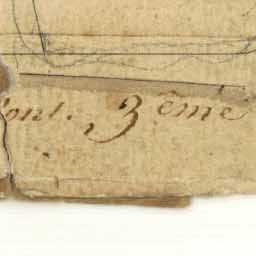 ont. 3ème